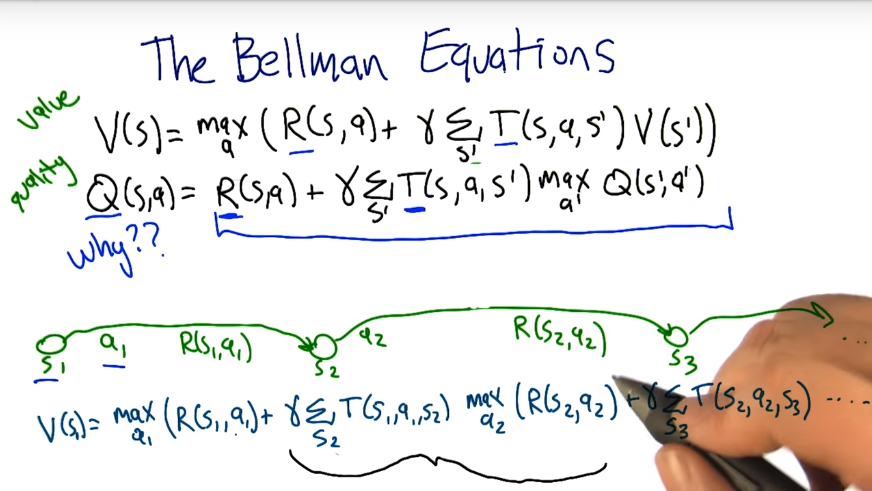 The Bellman Equations
value
V(s) = max_a (R(s,a) + γ Σ_s' T(s,a,s') V(s'))
quality
Q(s,a) = R(s,a) + γ Σ_s' T(s,a,s') max_a' Q(s',a')
Why??
s₁ a₁ R(s₁,a₁) s₂ a₂ R(s₂,a₂) s₃ ...
V(s₁) = max_a₁ (R(s₁,a₁) + γ Σ_s₂ T(s₁,a₁,s₂) max_a₂ (R(s₂,a₂) + γ Σ_s₃ T(s₂,a₂,s₃) ....